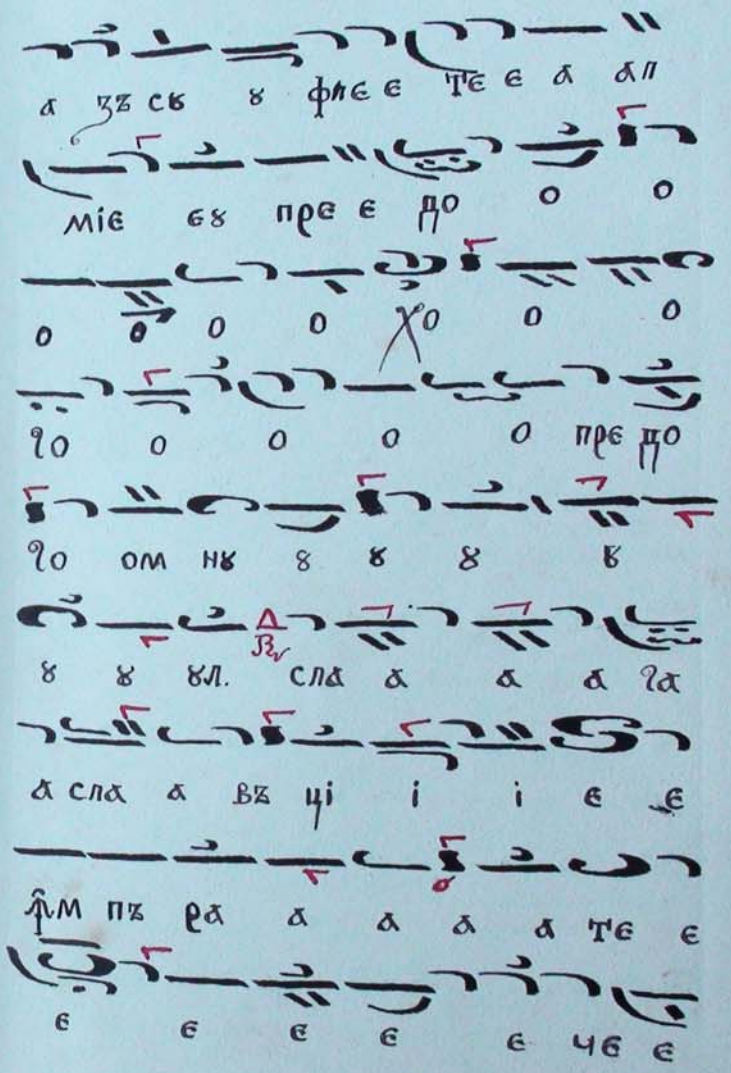 а зъ сȣ ȣ фле е те е а ап
мїе еȣ пре е до о о
о о о о хо о о
го о о о о пре до
го ом нȣ ȣ ȣ ȣ ȣ
ȣ ȣ ȣл. сла а а а га
а сла а въ цї ї ї е е
ꙟм пъ ра а а а а те е
е е е е е че е